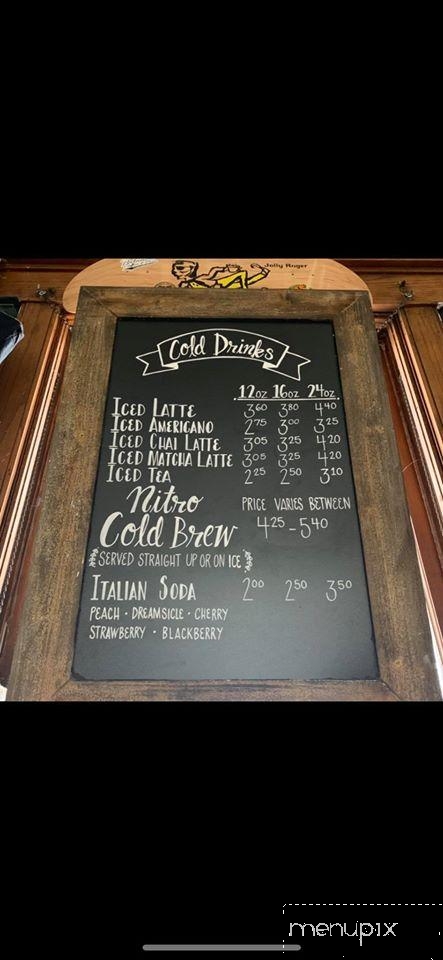 Jolly Roger
Cold Drinks
12oz 16oz 24oz
Iced Latte 3 60 3 80 4 40
Iced Americano 2 75 3 00 3 25
Iced Chai Latte 3 05 3 25 4 20
Iced Matcha Latte 3 05 3 25 4 20
Iced Tea 2 25 2 50 3 10
Nitro Cold Brew
Price varies between
4 25 - 5 40
Served straight up or on ice
Italian Soda 2 00 2 50 3 50
Peach · Dreamsicle · Cherry
Strawberry · Blackberry
menupix